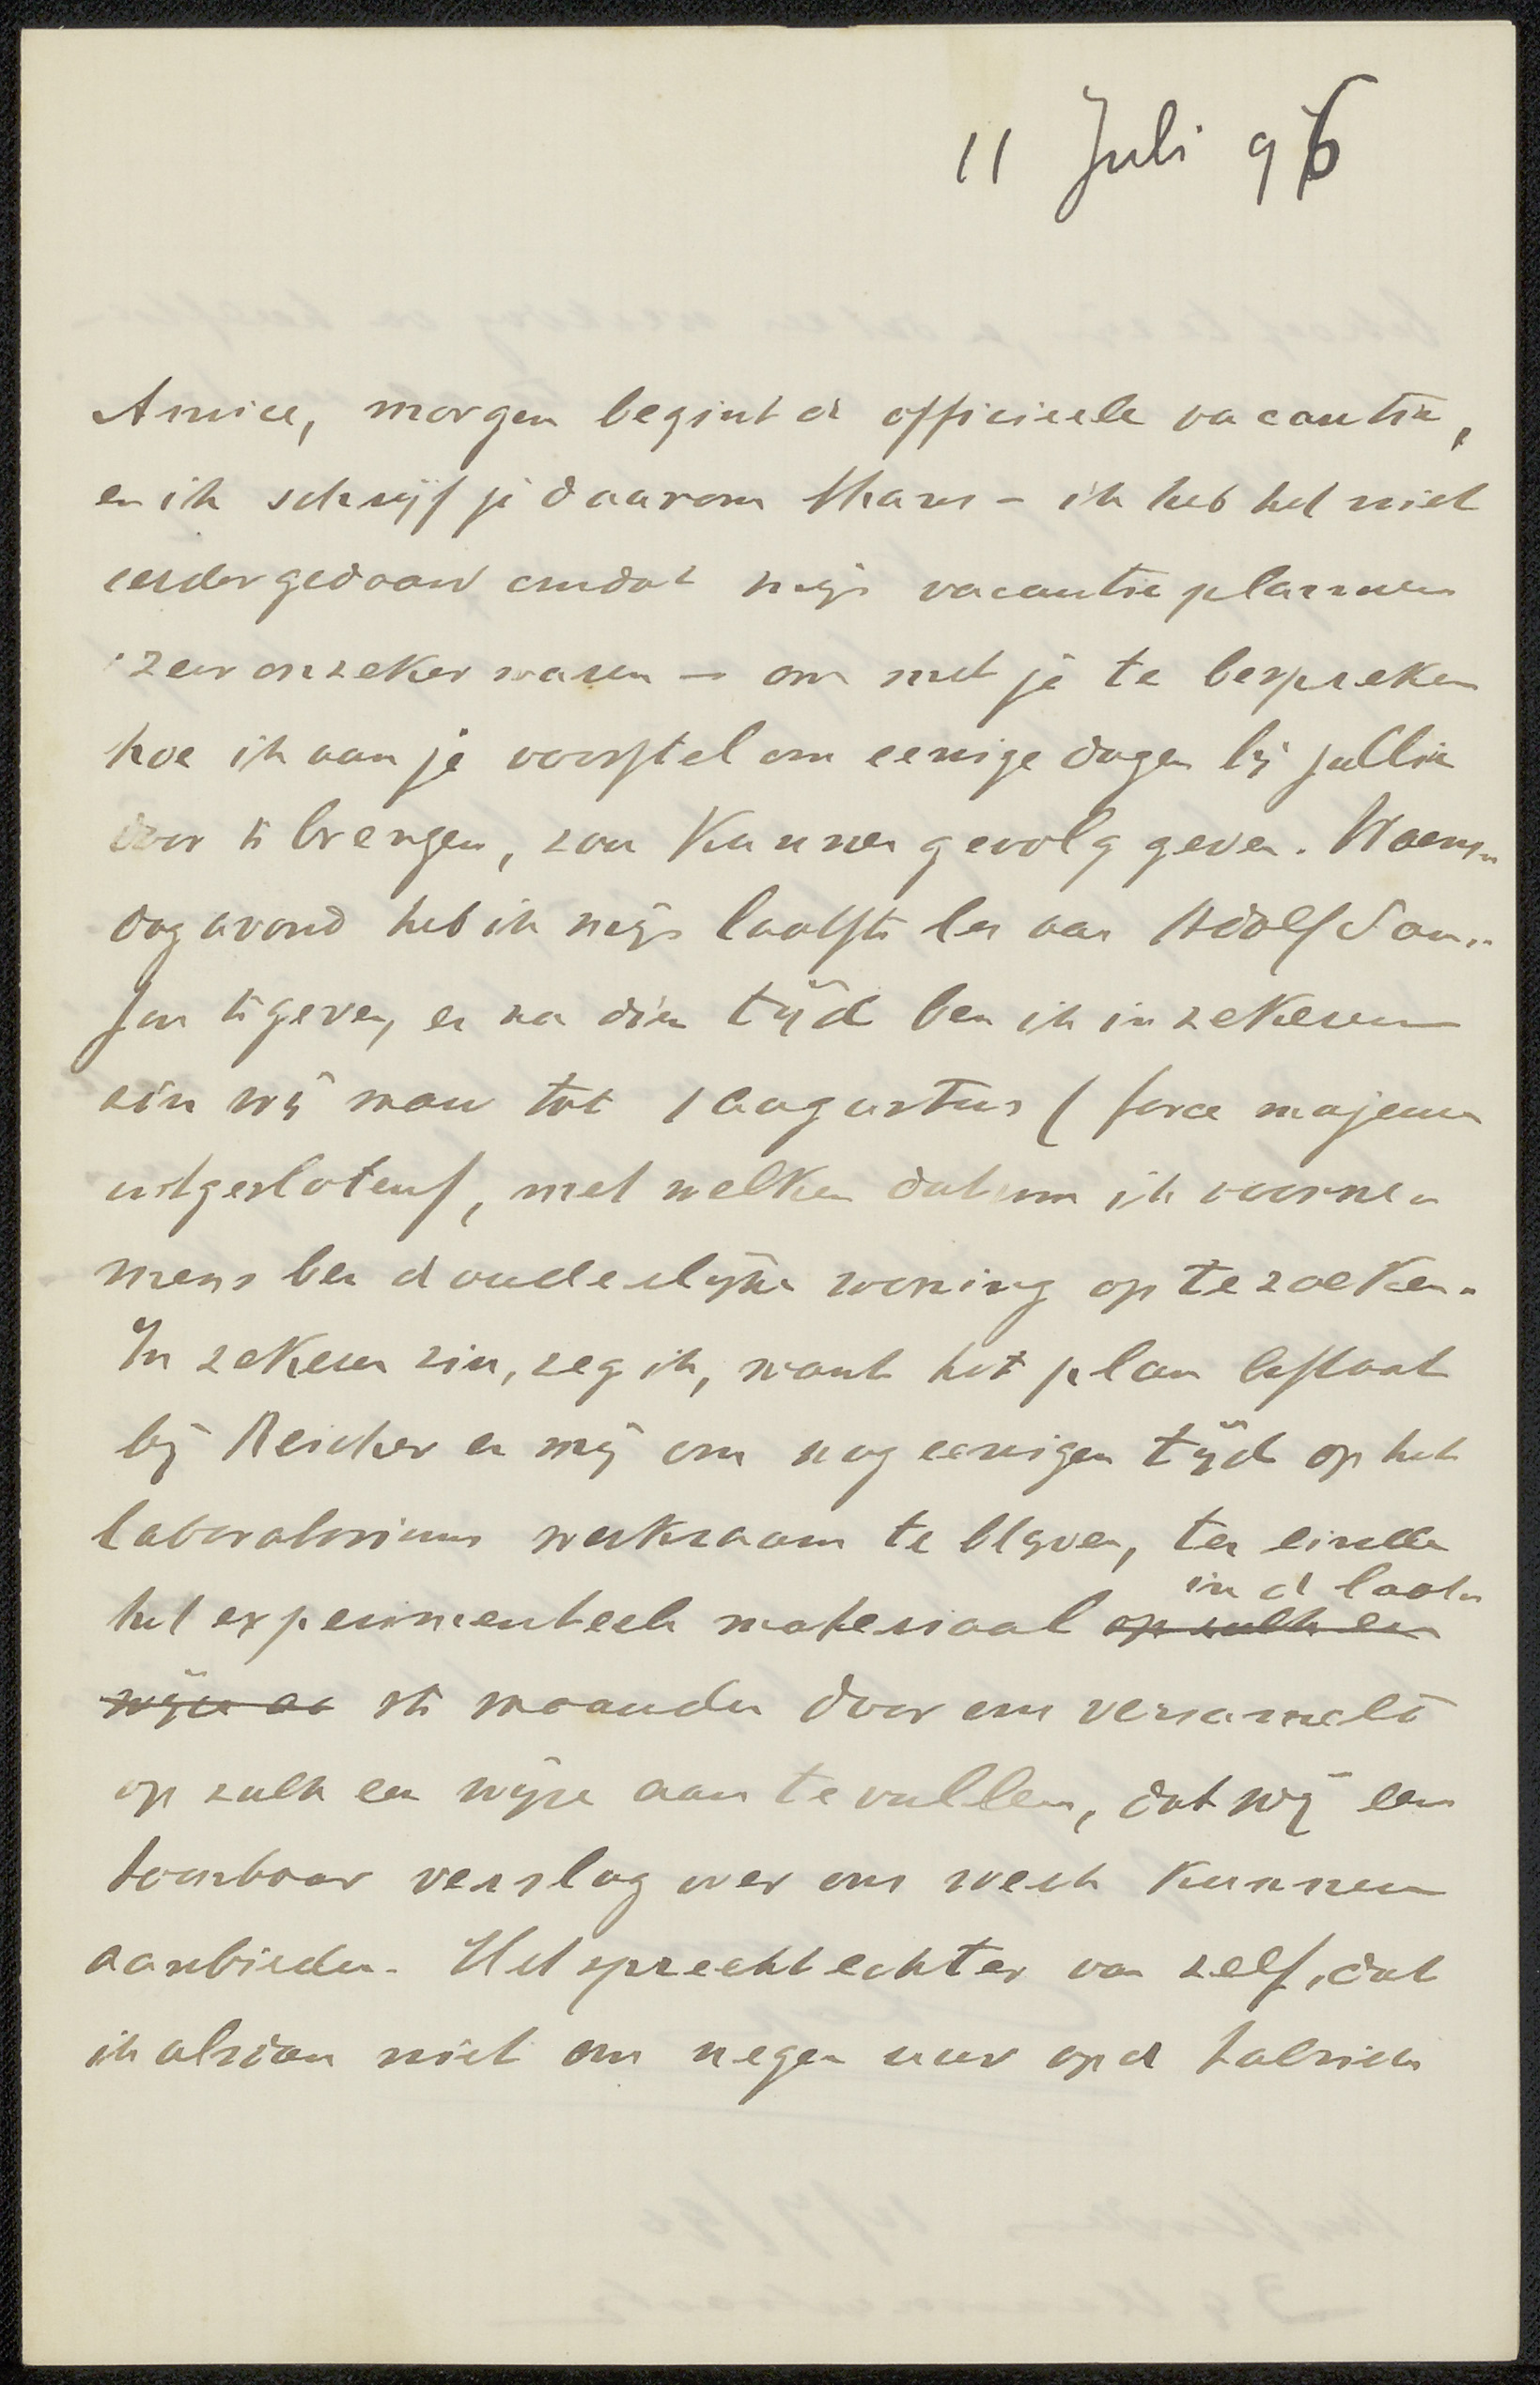 11 Juli 96
Amice, morgen begint de officieele vacantie,
en ik schrijf je daarom thans – ik heb het niet
eerder gedaan omdat mijn vacantieplannen
zeer onzeker waren – om met je te bespreken
hoe ik aan je voorstel om eenige dagen bij jullie
door te brengen, zou kunnen gevolg geven. Woens-
dagavond heb ik mijn laatste les aan Adolf
te geven, en na dien tijd ben ik in zekeren
zin vrij man tot 1 augustus (force majeure
uitgesloten), met welken datum ik voorne-
mens ben de ouderlijke woning op te zoeken.
In zekeren zin, zeg ik, want het plan bestaat
bij Reicher en mij om nog eenigen tijd op het
laboratorium werkzaam te blijven, ten einde
het experimenteele materiaal op zulk een in de laat-
wijze aa ste maanden door ons verzameld
op zulk een wijze aan te vullen, dat wij een
toonbaar verslag over ons werk kunnen
aanbieden. Het spreekt echter van zelf, dat
ik alsdan niet om negen uur op de fabriek